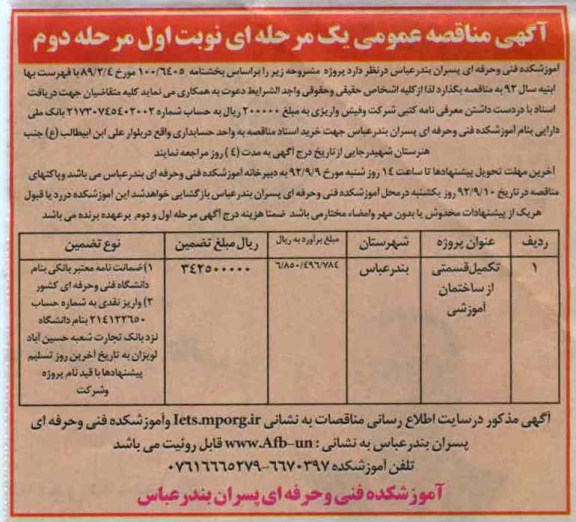 آگهی مناقصه عمومی یک مرحله ای نوبت اول مرحله دوم
آموزشکده فنی وحرفه ای پسران بندرعباس درنظر دارد پروژه مشروحه زیر را براساس بخشنامه ۱۰۰/۶۴۰۵ مورخ ۸۹/۲/۴ با فهرست بها
ابنیه سال ۹۲ به مناقصه بگذارد لذا از کلیه اشخاص حقیقی وحقوقی واجد الشرایط دعوت به همکاری می نماید کلیه متقاضیان جهت دریافت
اسناد با دردست داشتن معرفی نامه کتبی شرکت وفیش واریزی به مبلغ ۲۰۰۰۰۰ ریال به حساب شماره ۲۱۷۳۰۷۴۵۴۰۲۰۰۲ بانک ملی
دارایی بنام آموزشکده فنی وحرفه ای پسران بندرعباس جهت خرید اسناد مناقصه به واحد حسابداری واقع دربلوار علی ابن ابیطالب (ع) جنب
هنرستان شهیدرجایی از تاریخ درج آگهی به مدت (۴) روز مراجعه نمایند
آخرین مهلت تحویل پیشنهادها تا ساعت ۱۴ روز شنبه مورخ ۹۲/۹/۹ به دبیرخانه آموزشکده فنی وحرفه ای بندرعباس می باشد وپاکتهای
مناقصه در تاریخ ۹۲/۹/۱۰ روز یکشنبه درمحل آموزشکده فنی وحرفه ای پسران بندرعباس بازگشایی خواهدشد این آموزشکده دررد یا قبول
هریک از پیشنهادات مخدوش یا بدون مهر وامضاء مختار می باشد ضمنا هزینه درج آگهی مرحله اول و دوم برعهده برنده می باشد
ردیف عنوان پروژه شهرستان مبلغ برآورد به ریال ریال مبلغ تضمین نوع تضمین
۱ تکمیل قسمتی از ساختمان آموزشی بندرعباس ۶/۸۵۰/۴۹۶/۷۸۴ ۳۴۲۵۰۰۰۰۰
۱) ضمانت نامه معتبر بانکی بنام
دانشگاه فنی وحرفه ای کشور
۲) واریز نقدی به شماره حساب
۲۱۴۱۲۲۶۵۰ بنام دانشگاه
نزد بانک تجارت شعبه حسین آباد
لویزان به تاریخ آخرین روز تسلیم
پیشنهادها با قید نام پروژه
وشرکت
آگهی مذکور درسایت اطلاع رسانی مناقصات به نشانی Iets.mporg.ir وآموزشکده فنی وحرفه ای
پسران بندرعباس به نشانی : www.Afb-un قابل روئیت می باشد
تلفن آموزشکده ۶۶۷۰۳۹۷-۰۷۶۱۶۶۶۵۲۷۹
آموزشکده فنی وحرفه ای پسران بندرعباس